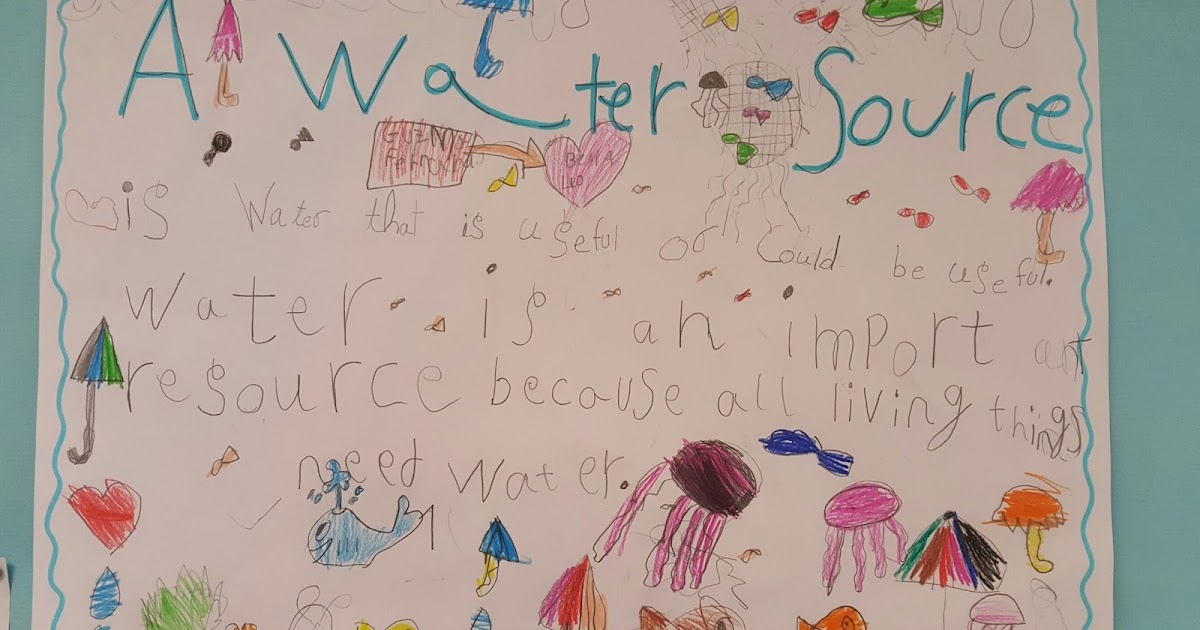 A Water Source
BELLA
LEO
is Water that is useful or Could be useful.
Water is an important
resource because all living things
need water.